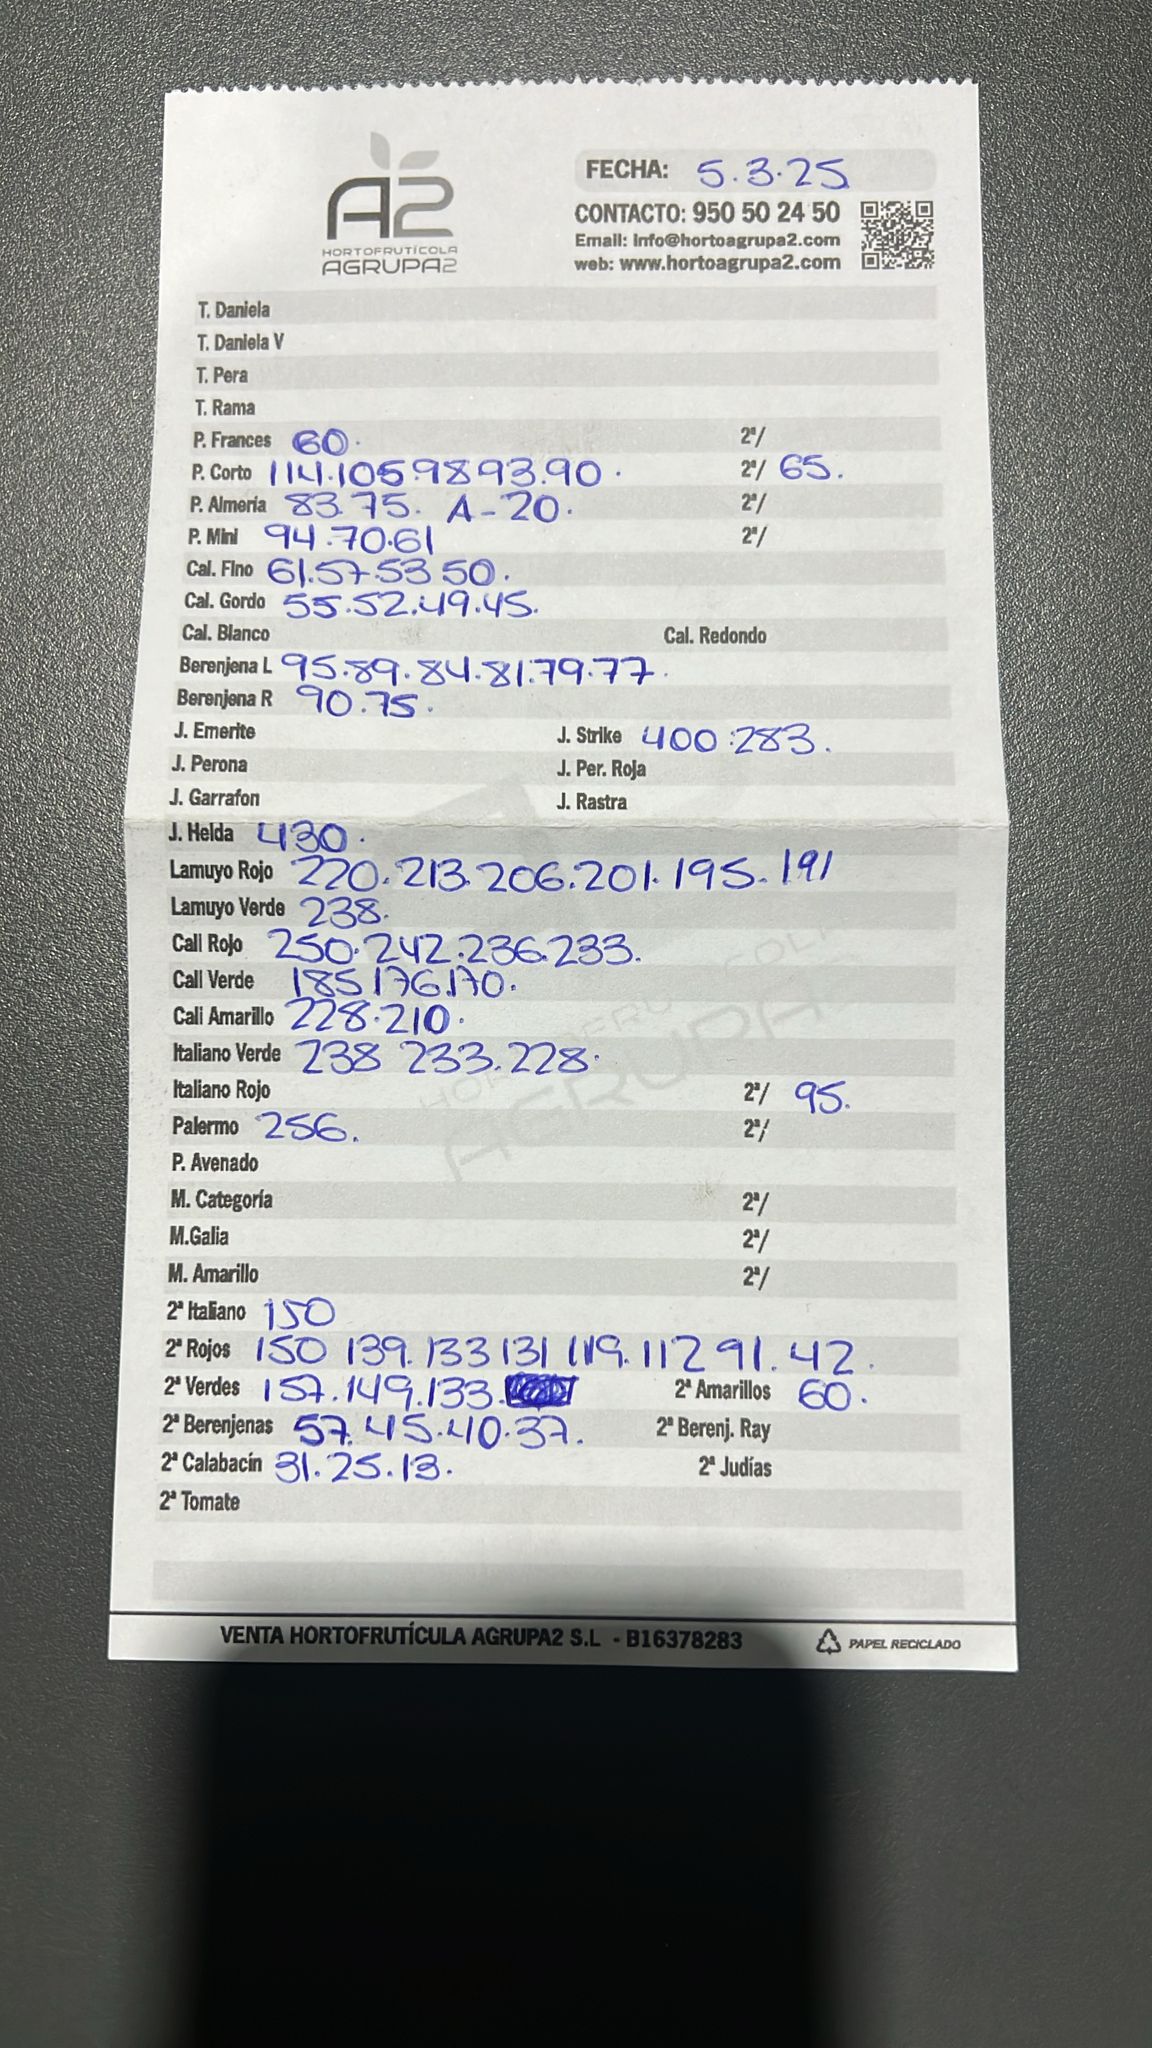 A2
HORTOFRUTÍCOLA
AGRUPA2
FECHA: 5.3.25
CONTACTO: 950 50 24 50
Email: info@hortoagrupa2.com
web: www.hortoagrupa2.com
T. Daniela
T. Daniela V
T. Pera
T. Rama
P. Frances 60. 2ª/
P. Corto 114.105.98 93.90. 2ª/ 65.
P. Almería 83.75. A-20. 2ª/
P. Mini 94.70.61 2ª/
Cal. Fino 61.57.53 50.
Cal. Gordo 55.52.49.45.
Cal. Blanco Cal. Redondo
Berenjena L 95.89.84.81.79.77.
Berenjena R 90.75.
J. Emerite J. Strike 400.283.
J. Perona J. Per. Roja
J. Garrafon J. Rastra
J. Helda 430.
Lamuyo Rojo 220.213.206.201.195.191
Lamuyo Verde 238.
Cali Rojo 250.242.236.233.
Cali Verde 185 176.170.
Cali Amarillo 228.210.
Italiano Verde 238 233.228.
Italiano Rojo 2ª/ 95.
Palermo 256. 2ª/
P. Avenado
M. Categoría 2ª/
M.Galia 2ª/
M. Amarillo 2ª/
2ª Italiano 150
2ª Rojos 150 139.133 131 119.112 91.42.
2ª Verdes 157.149.133. 2ª Amarillos 60.
2ª Berenjenas 57.45.40.37. 2ª Berenj. Ray
2ª Calabacín 31.25.13. 2ª Judías
2ª Tomate
VENTA HORTOFRUTÍCULA AGRUPA2 S.L - B16378283 PAPEL RECICLADO